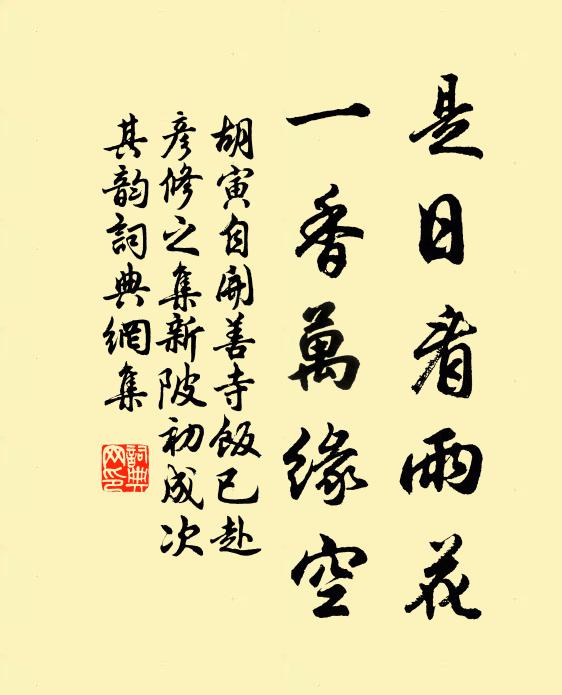 是日看雨花
一香萬緣空
胡寅自開善寺飯已赴
彥修之集新陂初成次
其韵詞典網集
詞典網印